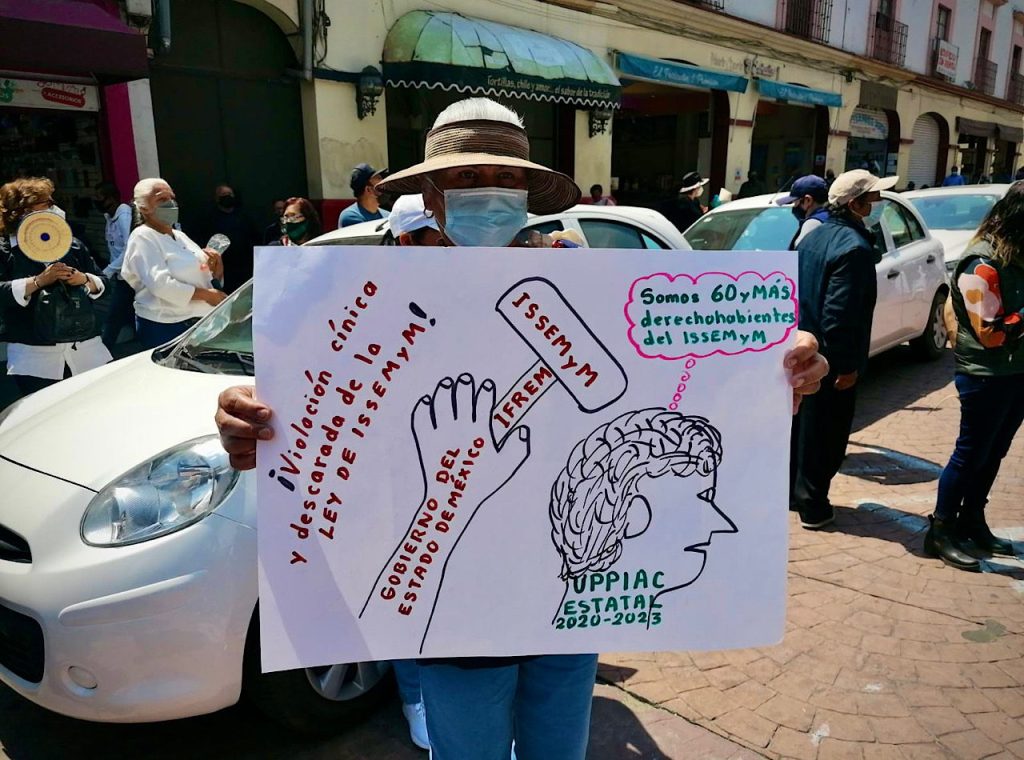 Tortillas, chile y amor... el sabor de la tradición
ACCESORIOS
¡Violación cínica
y descarada de la
LEY DE ISSEMyM!
ISSEMyM
IFREM
GOBIERNO DEL
ESTADO DE MÉXICO
Somos 60 y MÁS
derechohabientes
del ISSEMyM
UPPIAC
ESTATAL
2020-2023